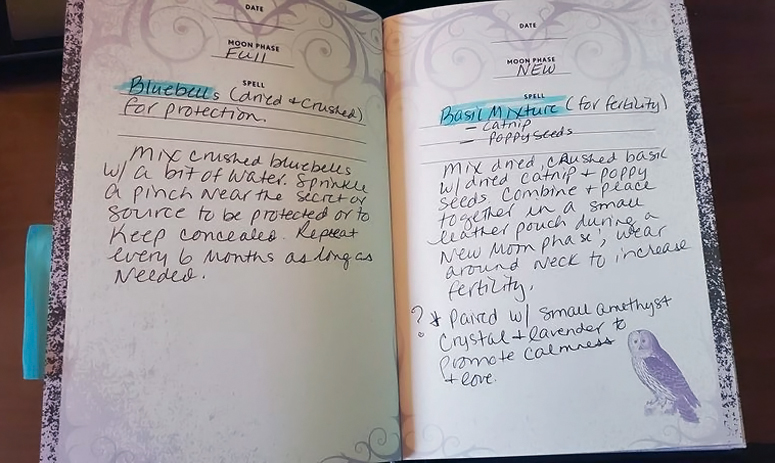 DATE
MOON PHASE
Full
SPELL
Bluebells (dried + Crushed)
for protection.
Mix crushed bluebells
w/ a bit of water. Sprinkle
a pinch near the secret or
source to be protected or to
keep concealed. Repeat
every 6 months as long as
needed.
DATE
MOON PHASE
NEW
SPELL
Basil Mixture (for fertility)
- Catnip
- Poppy Seeds
Mix dried, crushed basil
w/ dried catnip + poppy
seeds. Combine + place
together in a small
leather pouch during a
New Moon phase; wear
around neck to increase
fertility.
? * Paired w/ small amethyst
crystal + lavender to
promote calmness
+ love.